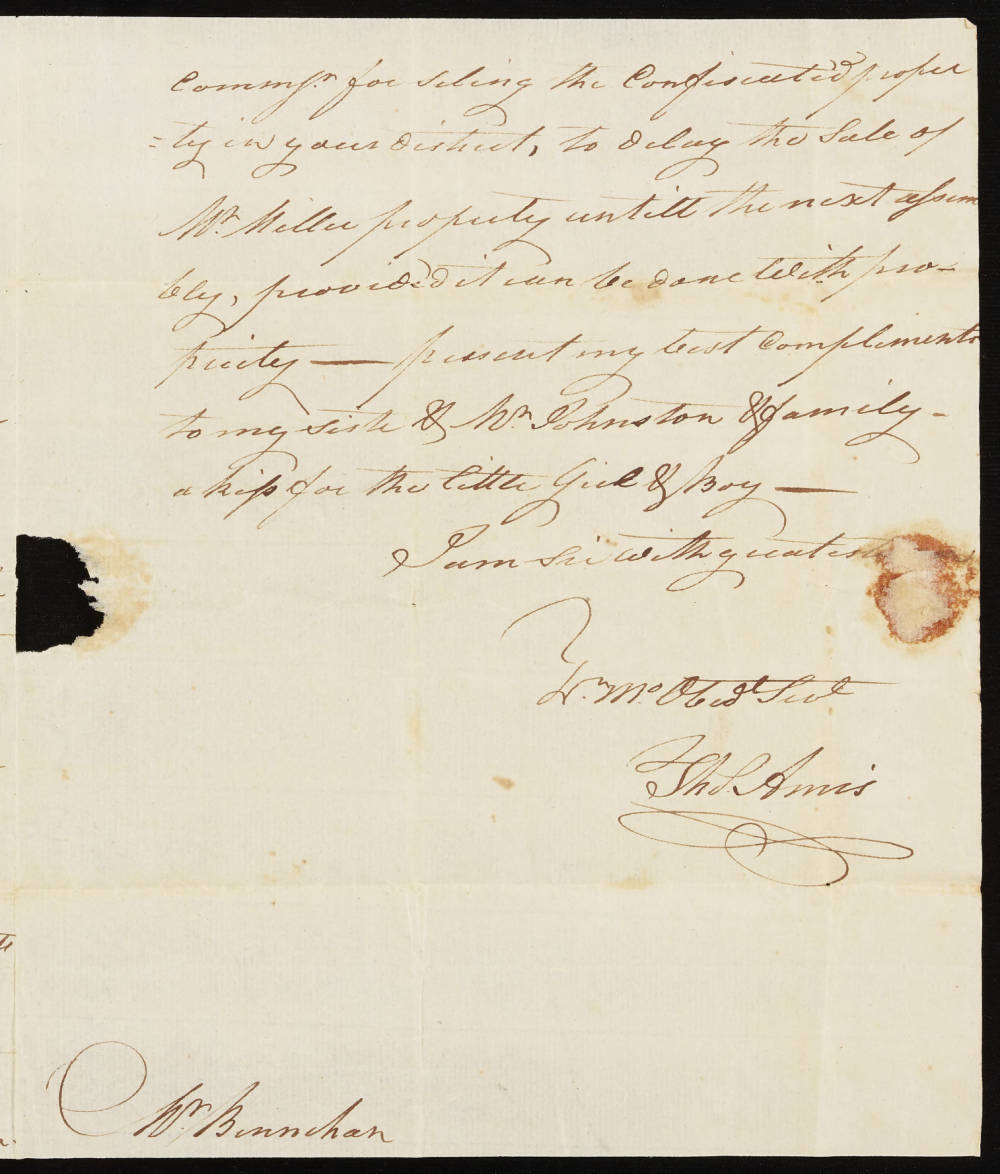 Commsr. for seling the Confiscated proper
=ty in your district, to delay the Sale of
Mr. Miller property untill the next assem
bly, provided it can be done With pro-
priety — present my best Compliments
to my siste & Mr. Johnston & family -
a kiss for the little Girl & Boy —
I am sir with greatest
Yr. Mo. Obedt. Servt
Thos. Amis
Mr. Bennehan